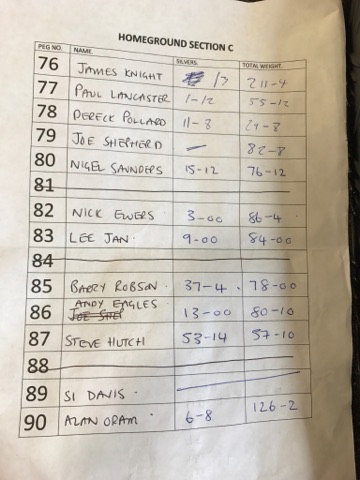 HOMEGROUND SECTION C
PEG NO. NAME. SILVERS. TOTAL WEIGHT.
76 JAMES KNIGHT 211-4
77 PAUL LANCASTER 1-12 55-12
78 DERECK POLLARD 11-8
79 JOE SHEPHERD — 82-8
80 NIGEL SAUNDERS 15-12 76-12
81
82 NICK EWERS 3-00 86-4
83 LEE JAN. 9-00 84-00
84
85 BARRY ROBSON. 37-4. 78-00
86 ANDY EAGLES. 13-00 80-10
87 STEVE HUTCH 53-14 57-10
88
89 SI DAVIS.
90 ALAN ORAM. 6-8 126-2